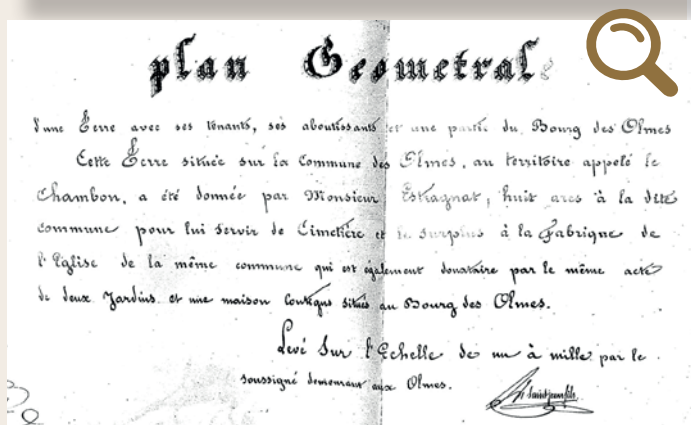 plan Geometral
d'une Terre avec ses tenants, ses aboutissants et une partie du Bourg des Olmes
Cette Terre située sur la Commune des Olmes, au territoire appelé le
Chambon, a été donnée par Monsieur Estragnat, huit ares à la dite
commune pour lui servir de Cimetière et le surplus à la Fabrique de
l'Eglise de la même commune qui est également donataire par le même acte
de deux Jardins et une maison Contigus situés au Bourg des Olmes.
Levé Sur l'Echelle de un à mille par le
soussigné demeurant aux Olmes.
Saintjean fils